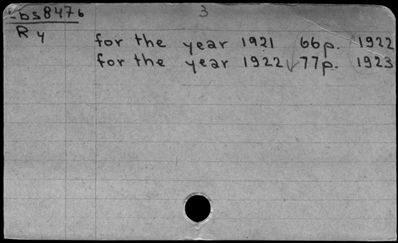 -bs8476 3
R4 for the year 1921 66p. 1922
for the year 1922 √77p. 1923